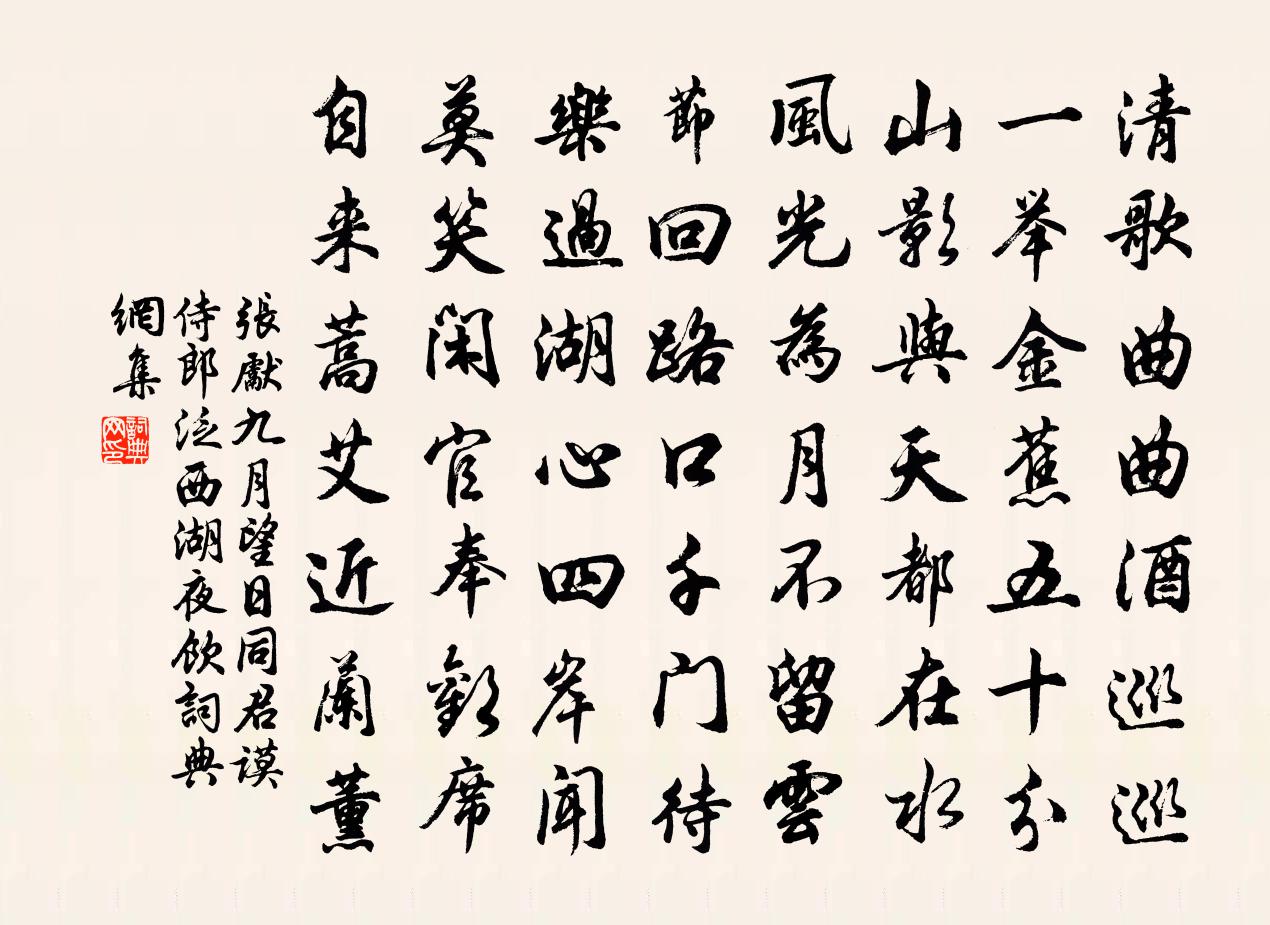 清歌曲曲酒巡巡
一举金蕉五十分
山影與天都在水
風光為月不留雲
節回路口千门待
樂過湖心四岸聞
莫笑閑官奉歡席
自来蒿艾近蘭薰
張獻九月望日同君謨
侍郎泛西湖夜飲詞典
網集
詞典网印